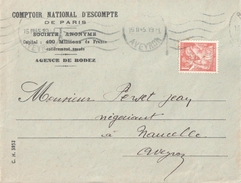 COMPTOIR NATIONAL D'ESCOMPTE
DE PARIS
SOCIÉTÉ ANONYME
Capital : 400 Millions de Francs
entièrement versés
AGENCE DE RODEZ
AVEYRON
Monsieur Jean
négociant
à Naucelle
Aveyron